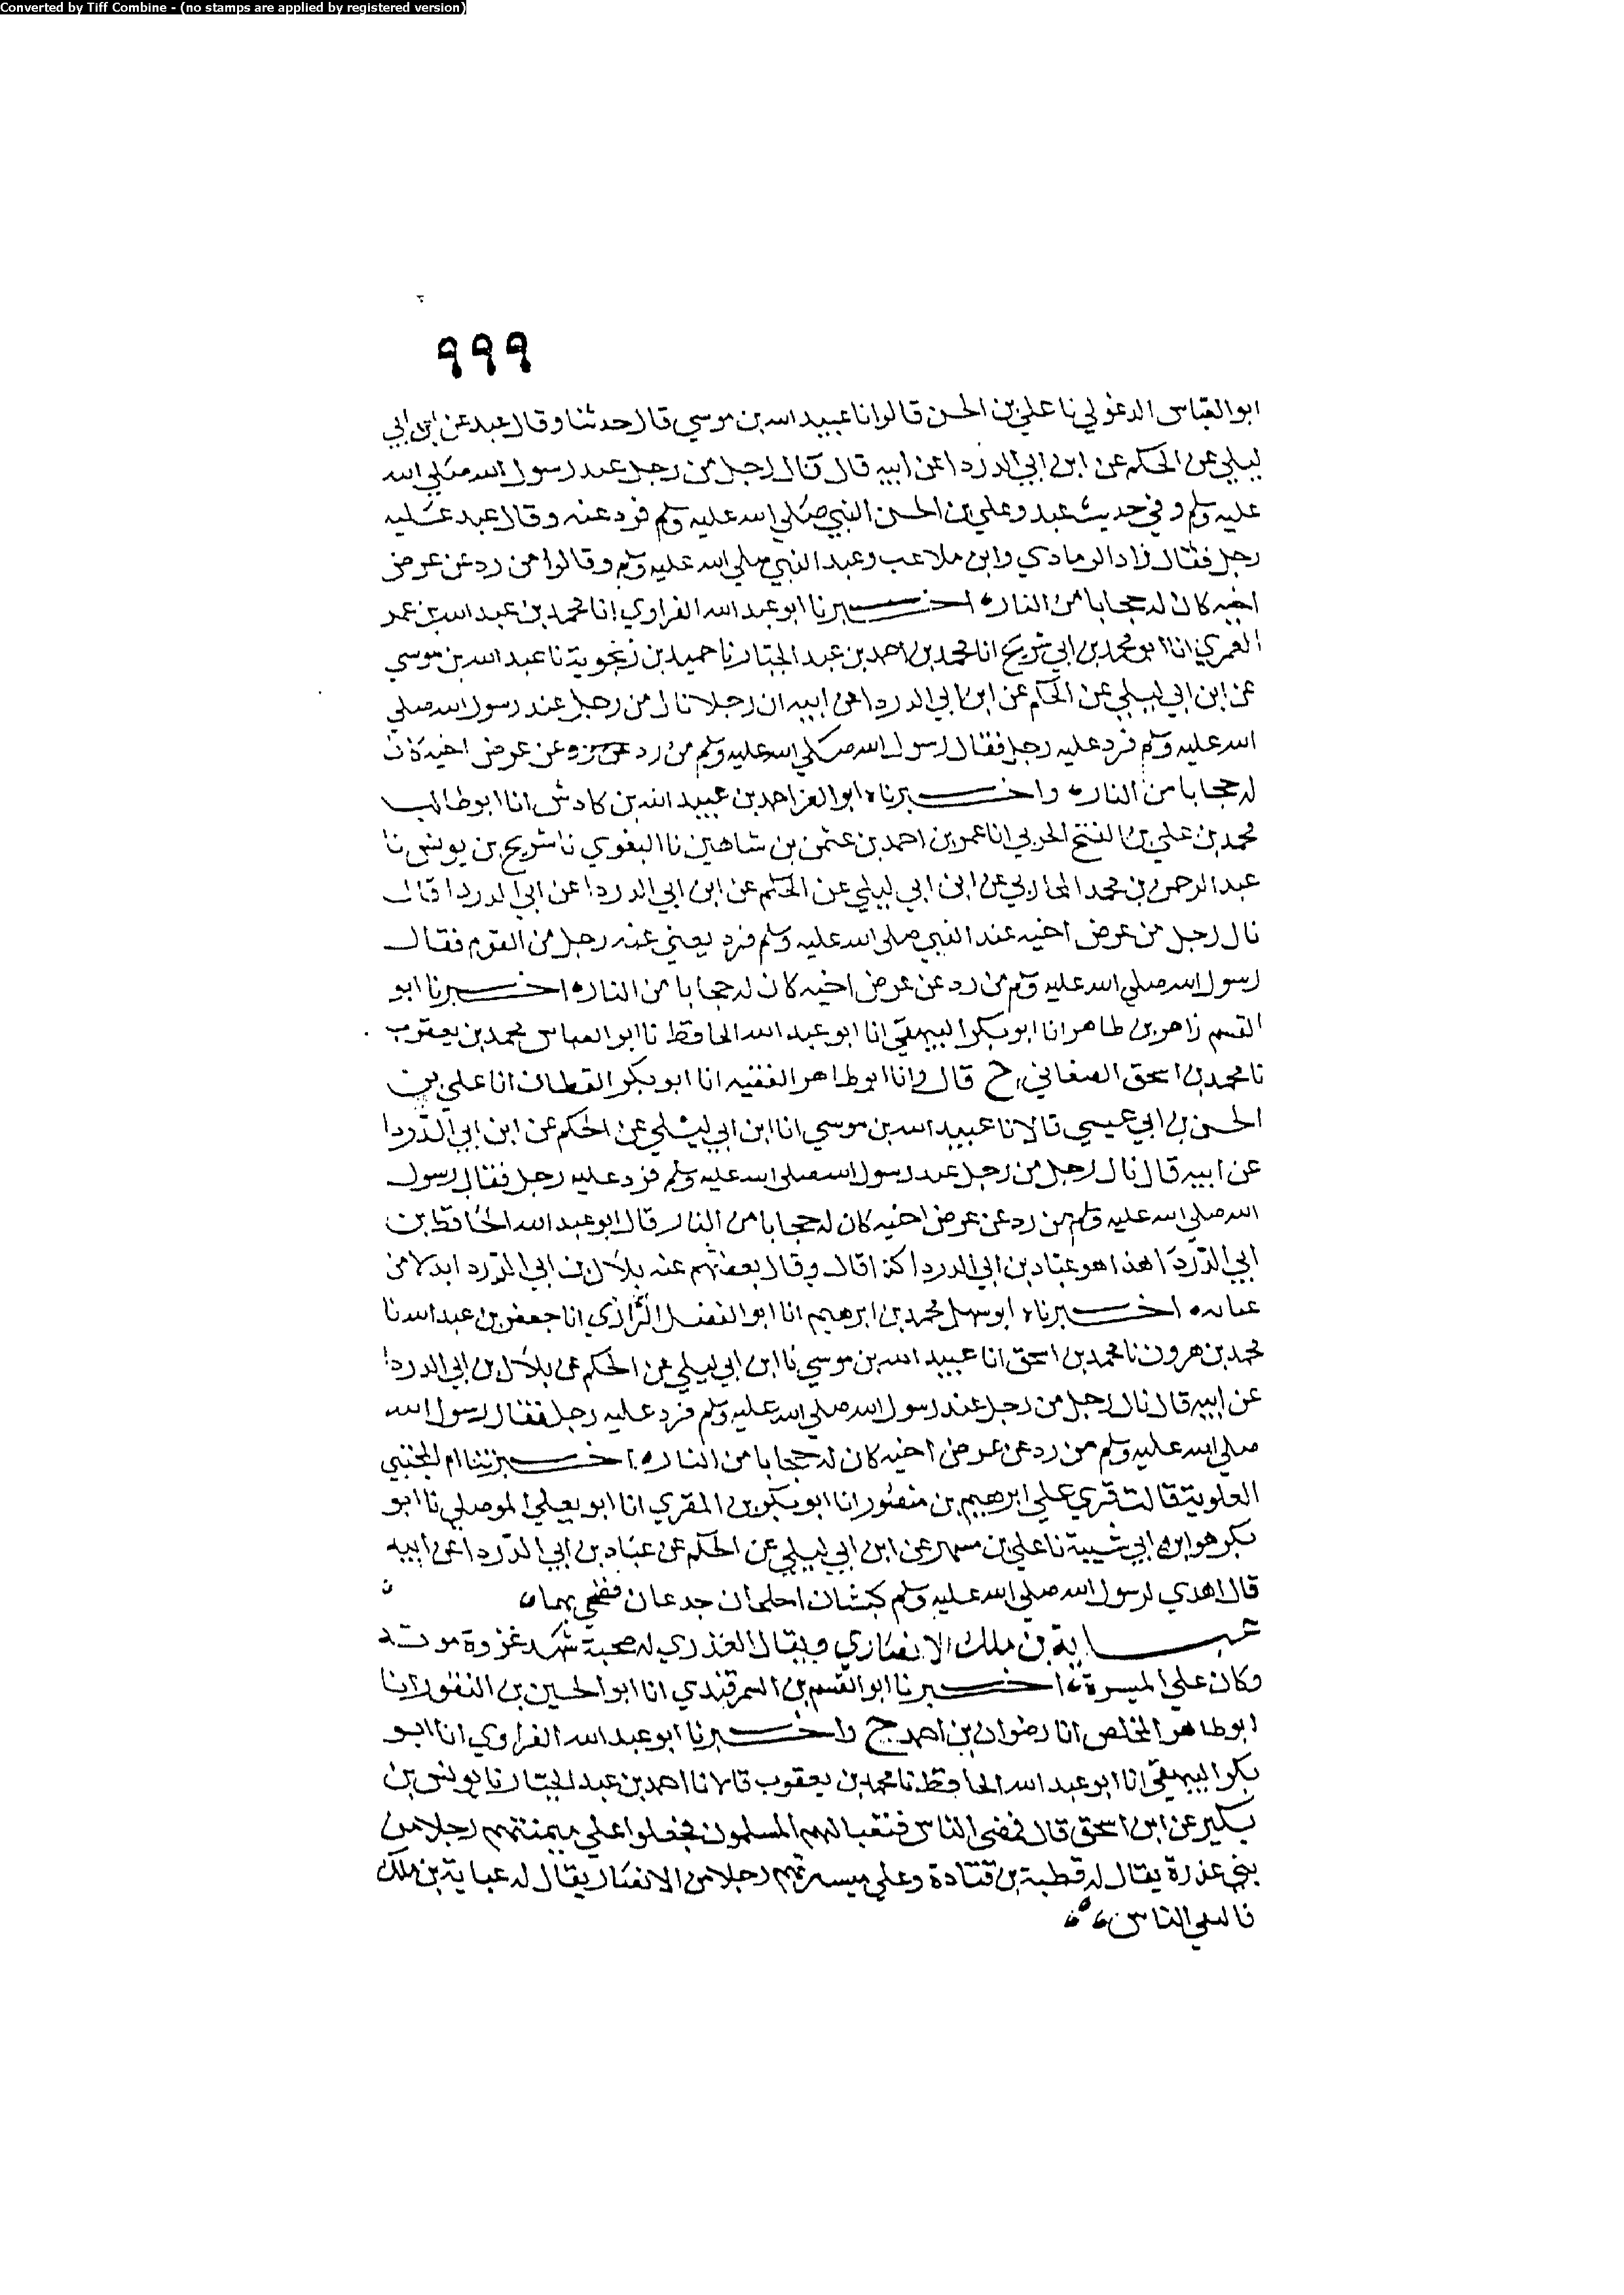 Converted by Tiff Combine - (no stamps are applied by registered version)
٩٩٩
ابو العباس الدغولي نا علي بن الحسن قالوا انا عبيد الله بن موسي قال حدثنا وقال عبد عن ابن ابي
ليلي عن الحكم عن ابن ابي الدردا عن ابيه قال نال رجل من رجل عند رسول الله صلي الله
عليه وسلم وفي حديث عبد وعلي بن الحسن النبي صلي الله عليه وسلم فرد عنه وقال عبد عليه
رجل فقال زاد الرمادي وابن ملاعب وعبد النبي صلي الله عليه وسلم وقالوا من رد عن عرض
اخيه كان له حجابا من النار اخبرنا ابو عبد الله الفراوي انا محمد بن عبد الله بن عمر
العمري انا ابو محمد بن ابي شريح انا محمد بن احمد بن عبد الجبار نا حميد بن زنجوية نا عبد الله بن موسي
عن ابن ابي ليلي عن الحكم عن ابن ابي الدردا عن ابيه ان رجلا نال من رجل عند رسول الله صلي
الله عليه وسلم فرد عليه رجل فقال رسول الله صلي الله عليه وسلم من رد عن عرض اخيه كان
له حجابا من النار واخبرناه ابو العز احمد بن عبيد الله بن كادش انا ابو طالب
محمد بن علي بن الفتح الحربي انا عمر بن احمد بن عثمن بن شاهين نا البغوي نا شريح بن يونس نا
عبد الرحمن بن محمد المحاربي عن ابن ابي ليلي عن الحكم عن ابن ابي الدردا عن ابي الدردا قال
نال رجل من عرض اخيه عند النبي صلي الله عليه وسلم فرد يعني عنه رجل من القوم فقال
رسول الله صلي الله عليه وسلم من رد عن عرض اخيه كان له حجابا من النار اخبرنا ابو
القسم زاهر بن طاهر انا ابو بكر البيهقي انا ابو عبد الله الحافظ نا ابو العباس محمد بن يعقوب
نا محمد بن اسحق الصغاني ح قال وانا ابو طاهر الفقيه انا ابو بكر القطان انا علي بن
الحسن بن ابي عيسي قالا نا عبيد الله بن موسي انا ابن ابي ليلي عن الحكم عن ابن ابي الدردا
عن ابيه قال نال رجل من رجل عند رسول الله صلي الله عليه وسلم فرد عليه رجل فقال رسول
الله صلي الله عليه وسلم من رد عن عرض اخيه كان له حجابا من النار قال ابو عبد الله الحافظ بن
ابي الدردا هذا هو عباد بن ابي الدردا كذا قال وقال بعضهم عنه بلال بن ابي الدردا بدلا من
عباده اخبرناه ابو سهل محمد بن ابرهيم انا ابو الفضل الرازي انا جعفر بن عبد الله نا
محمد بن هرون نا محمد بن اسحق انا عبيد الله بن موسي نا ابن ابي ليلي عن الحكم عن بلال بن ابي الدردا
عن ابيه قال نال رجل من رجل عند رسول الله صلي الله عليه وسلم فرد عليه رجل فقال رسول الله
صلي الله عليه وسلم من رد عن عرض اخيه كان له حجابا من النار اخبرتنا ام المجتبي
العلوية قالت قري علي ابرهيم بن منصور انا ابو بكر بن المقري انا ابو يعلي الموصلي نا ابو
بكر هو ابن ابي شيبة نا علي بن مسهر عن ابن ابي ليلي عن الحكم عن عباد بن ابي الدردا عن ابيه
قال اهدي لرسول الله صلي الله عليه وسلم كبشان املحان جدعان فضحي بهما
عباية بن ملك الانصاري ويقال العذري له صحبة شهد غزوة موته
وكان علي الميسرة اخبرنا ابو القسم بن السمرقندي انا ابو الحسين بن النقور انا
ابو طاهر المخلص انا رضوان بن احمد ح واخبرنا ابو عبد الله الفراوي انا ابو
بكر البيهقي انا ابو عبد الله الحافظ نا محمد بن يعقوب قالا نا احمد بن عبد الجبار نا يونس بن
بكير عن ابن اسحق قال فمضي الناس فتعبا لهم المسلمون فجعلوا علي ميمنتهم رجلا من
بني عذرة يقال له قطبة بن قتادة وعلي ميسرتهم رجلا من الانصار يقال له عباية بن ملك
فالتقي الناس